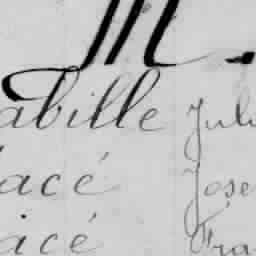 M.
abille Juli
acé Jose
acé Fra